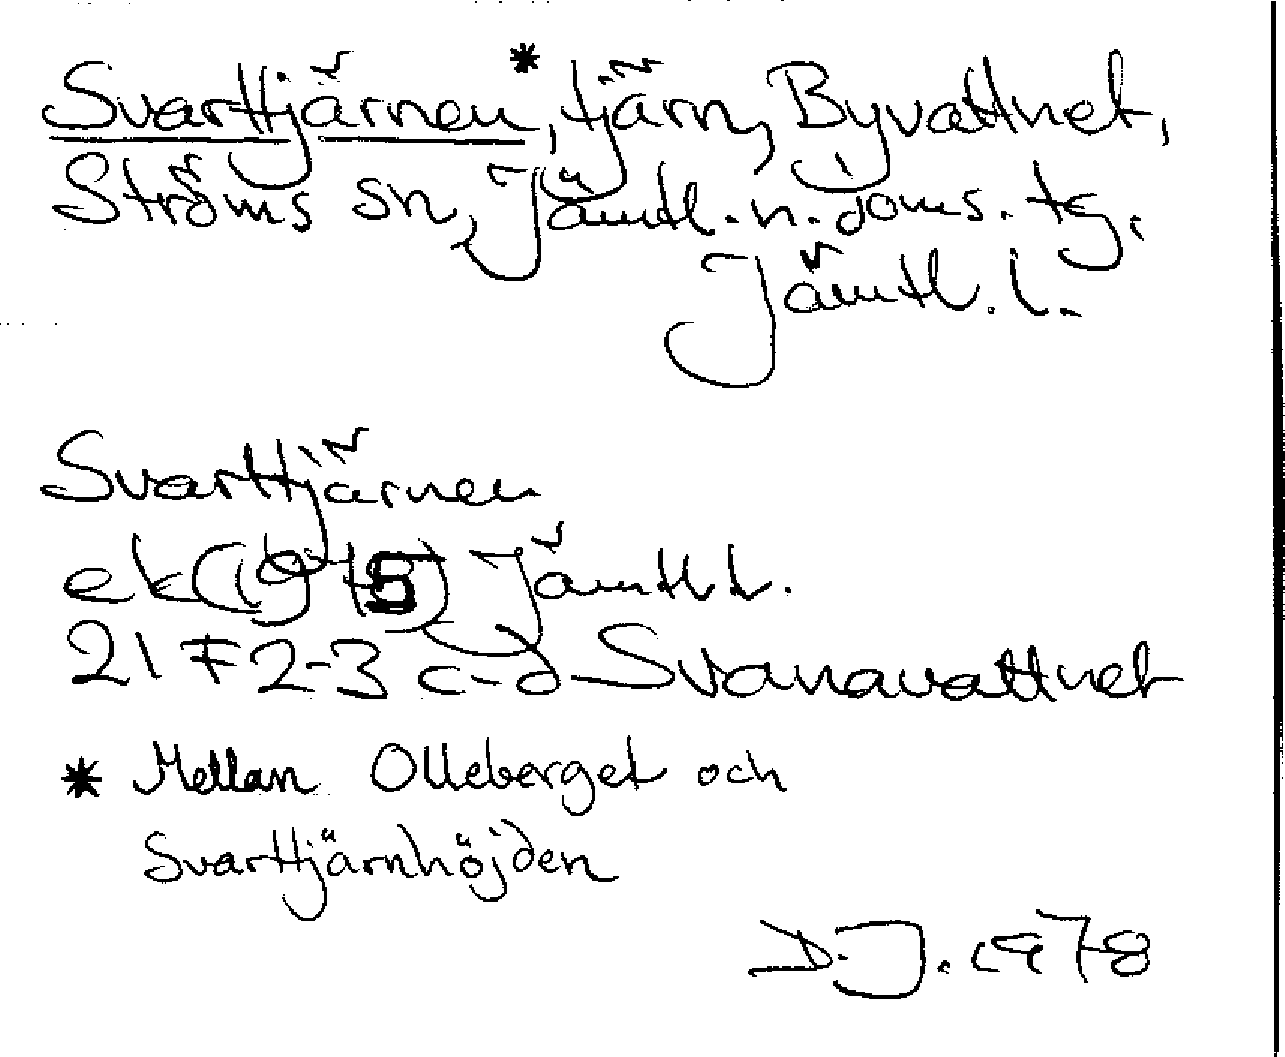 Svarttjärnen*, tjärn, Byvattnet,
Ströms sn, Jämtl. n. doms. tg.
Jämtl. l.
Svarttjärnen
ek (1945) Jämtl l.
21 F 2-3 c-d Svanavattnet
* Mellan Olleberget och
Svarttjärnhöjden
D.J. 1978